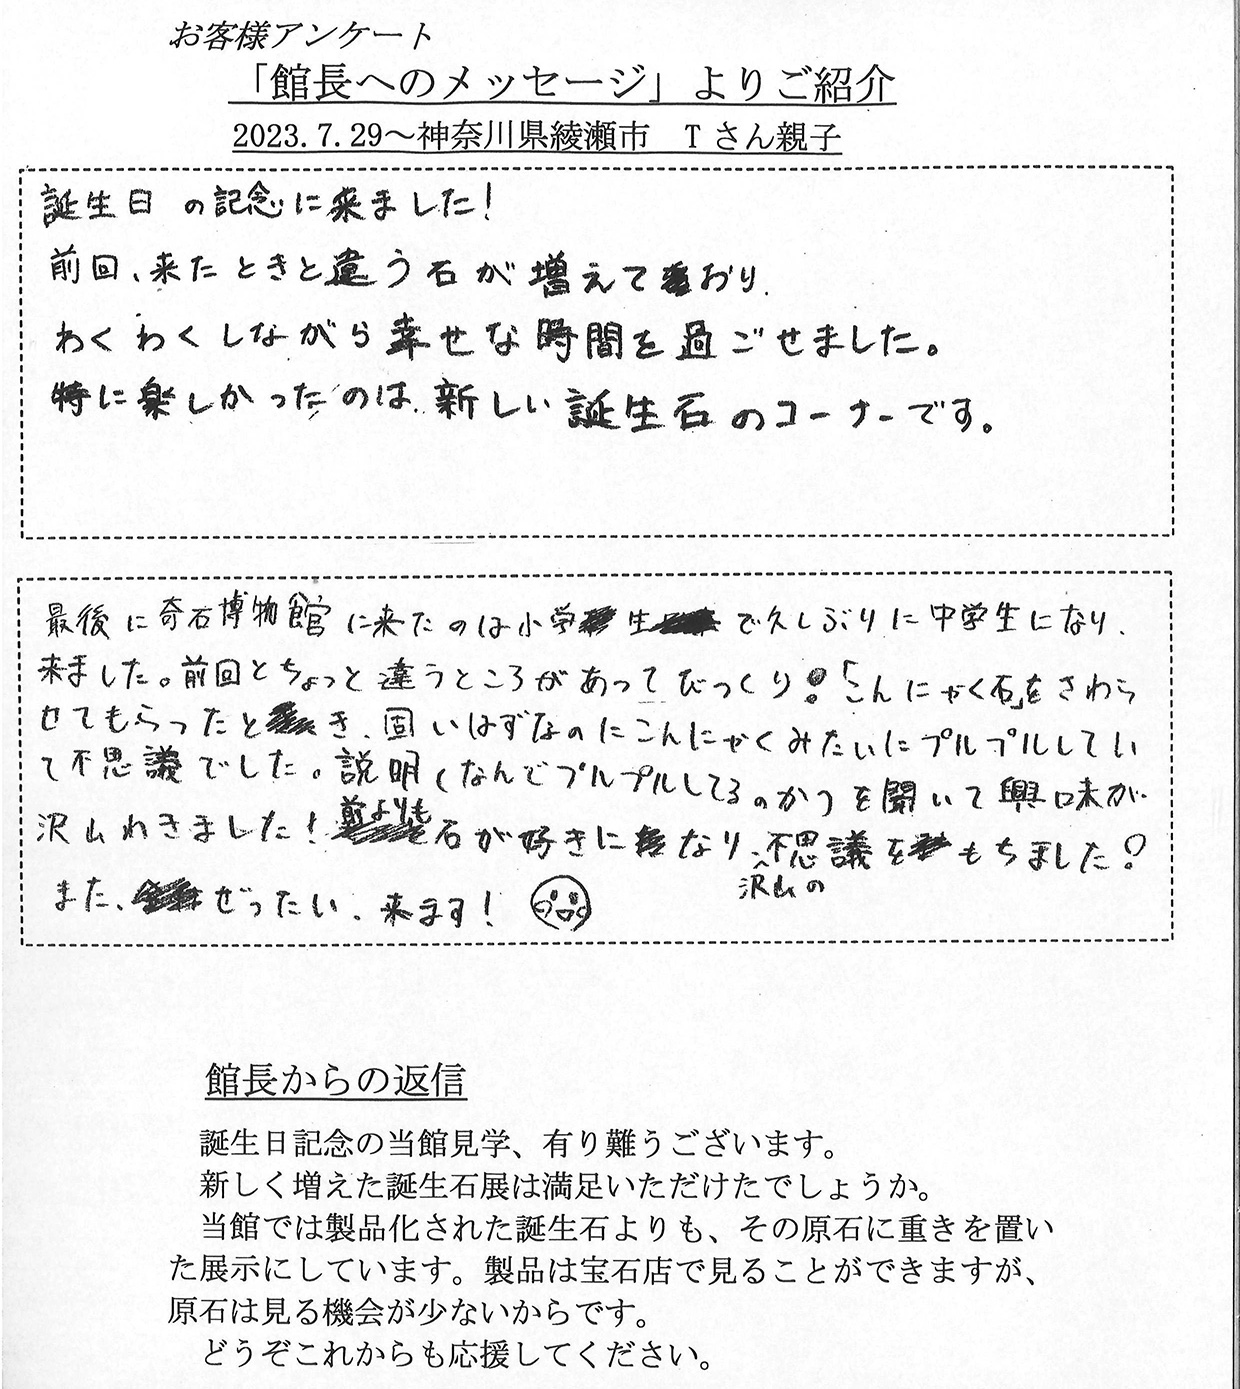 お客様アンケート
「館長へのメッセージ」よりご紹介
2023.7.29～神奈川県綾瀬市　Tさん親子
誕生日の記念に来ました！
前回、来たときと違う石が増えており、
わくわくしながら幸せな時間を過ごせました。
特に楽しかったのは、新しい誕生石のコーナーです。
最後に奇石博物館に来たのは小学生で久しぶりに中学生になり、
来ました。前回とちょっと違うところがあってびっくり！「こんにゃく石」をさわら
せてもらったとき、固いはずなのにこんにゃくみたいにプルプルしてい
て不思議でした。説明（なんでプルプルしてるのか）を聞いて興味が
沢山わきました！前よりも石が好きになり、沢山の不思議をもちました！
また、ぜったい、来ます！
館長からの返信
誕生日記念の当館見学、有り難うございます。
新しく増えた誕生石展は満足いただけたでしょうか。
当館では製品化された誕生石よりも、その原石に重きを置い
た展示にしています。製品は宝石店で見ることができますが、
原石は見る機会が少ないからです。
どうぞこれからも応援してください。